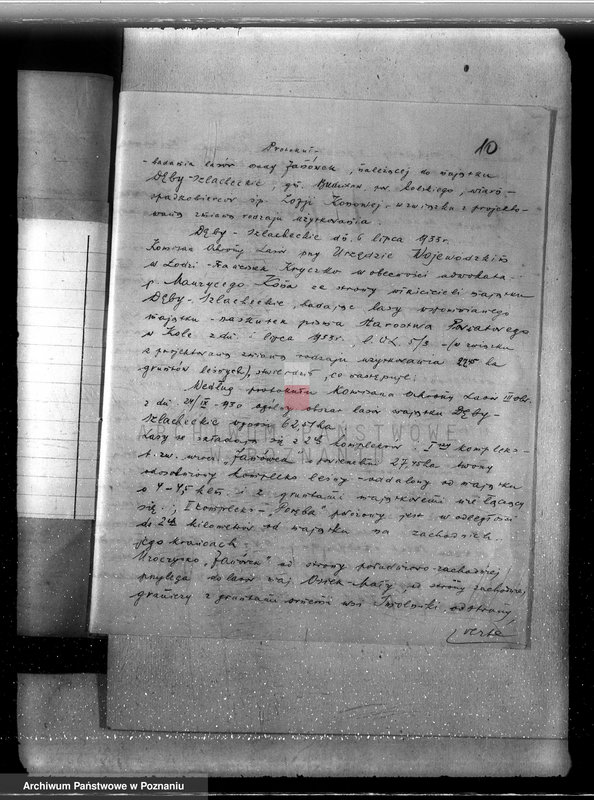 10
Protokół
badania lasów osady Janówek, należącej do majątku
Dęby-Szlacheckie, gm. Budzisław, pow. kolskiego, własn.
spadkobierców śp. Zofji Konowej, w związku z projekto-
waną zmianą rodzaju użytkowania.
Dęby-Szlacheckie dn. 6 lipca 1933r.
Komisarz Ochrony Lasów przy Urzędzie Wojewódzkim
w Łodzi - Franciszek Kryczko w obecności adwokata
p. Maurycego Kona ze strony właścicieli majątku
Dęby-Szlacheckie, badając lasy wspomnianego
majątku - naskutek pisma Starostwa Powiatowego
w Kole z dn. 1 lipca 1933r., w związku
z projektowaną zmianą rodzaju użytkowania ha
gruntów leśnych, stwierdził, co następuje:
Według protokułu Komisarza Ochrony Lasów III
z dn. 24/IX - 1930 ogólny obszar lasów majątku Dęby-
Szlacheckie wynosi 62,51 ha
Lasy te składają się z 2ch kompleksów - I kompleks -
t. zw. "Janówek" o powierzchni 27,45 ha tworzy
odosobniony kompleks leśny - oddalony od majątku
o 4-4,5 klm. i z gruntami majątkowemi nie łączący
się; II kompleks - położony jest w odległości
do 2ch kilometrów od majątku na zachodnich
jego krańcach.
Uroczysko "Janówek" od strony południowo-zachodniej
przylega do lasów maj. Osiek-Mały, od strony zachodniej
graniczy z gruntami ornemi wsi Smólniki, od strony
verte
ARCHIWUM PAŃSTWOWE
W POZNANIU
Archiwum Państwowe w Poznaniu